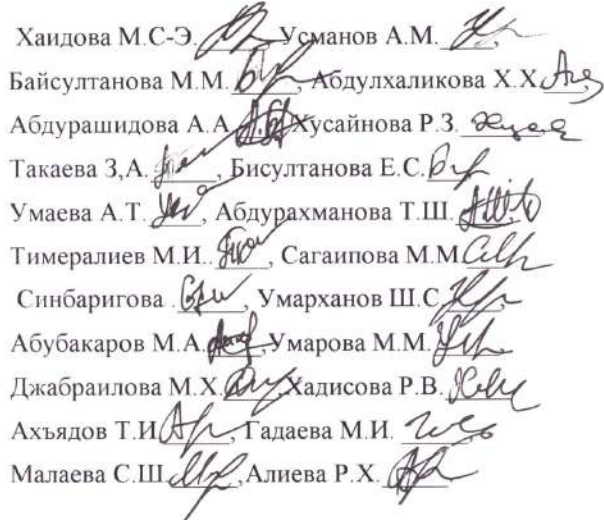 Хаидова М.С-Э. Усманов А.М. ,
Байсултанова М.М. , Абдулхаликова Х.Х.
Абдурашидова А.А. Хусайнова Р.З.
Такаева З,А. , Бисултанова Е.С.
Умаева А.Т. , Абдурахманова Т.Ш.
Тимералиев М.И.. , Сагаипова М.М.
Синбаригова . , Умарханов Ш.С.
Абубакаров М.А. ,Умарова М.М.
Джабраилова М.Х. ,Хадисова Р.В.
Ахъядов Т.И. , Гадаева М.И.
Малаева С.Ш. ,Алиева Р.Х.